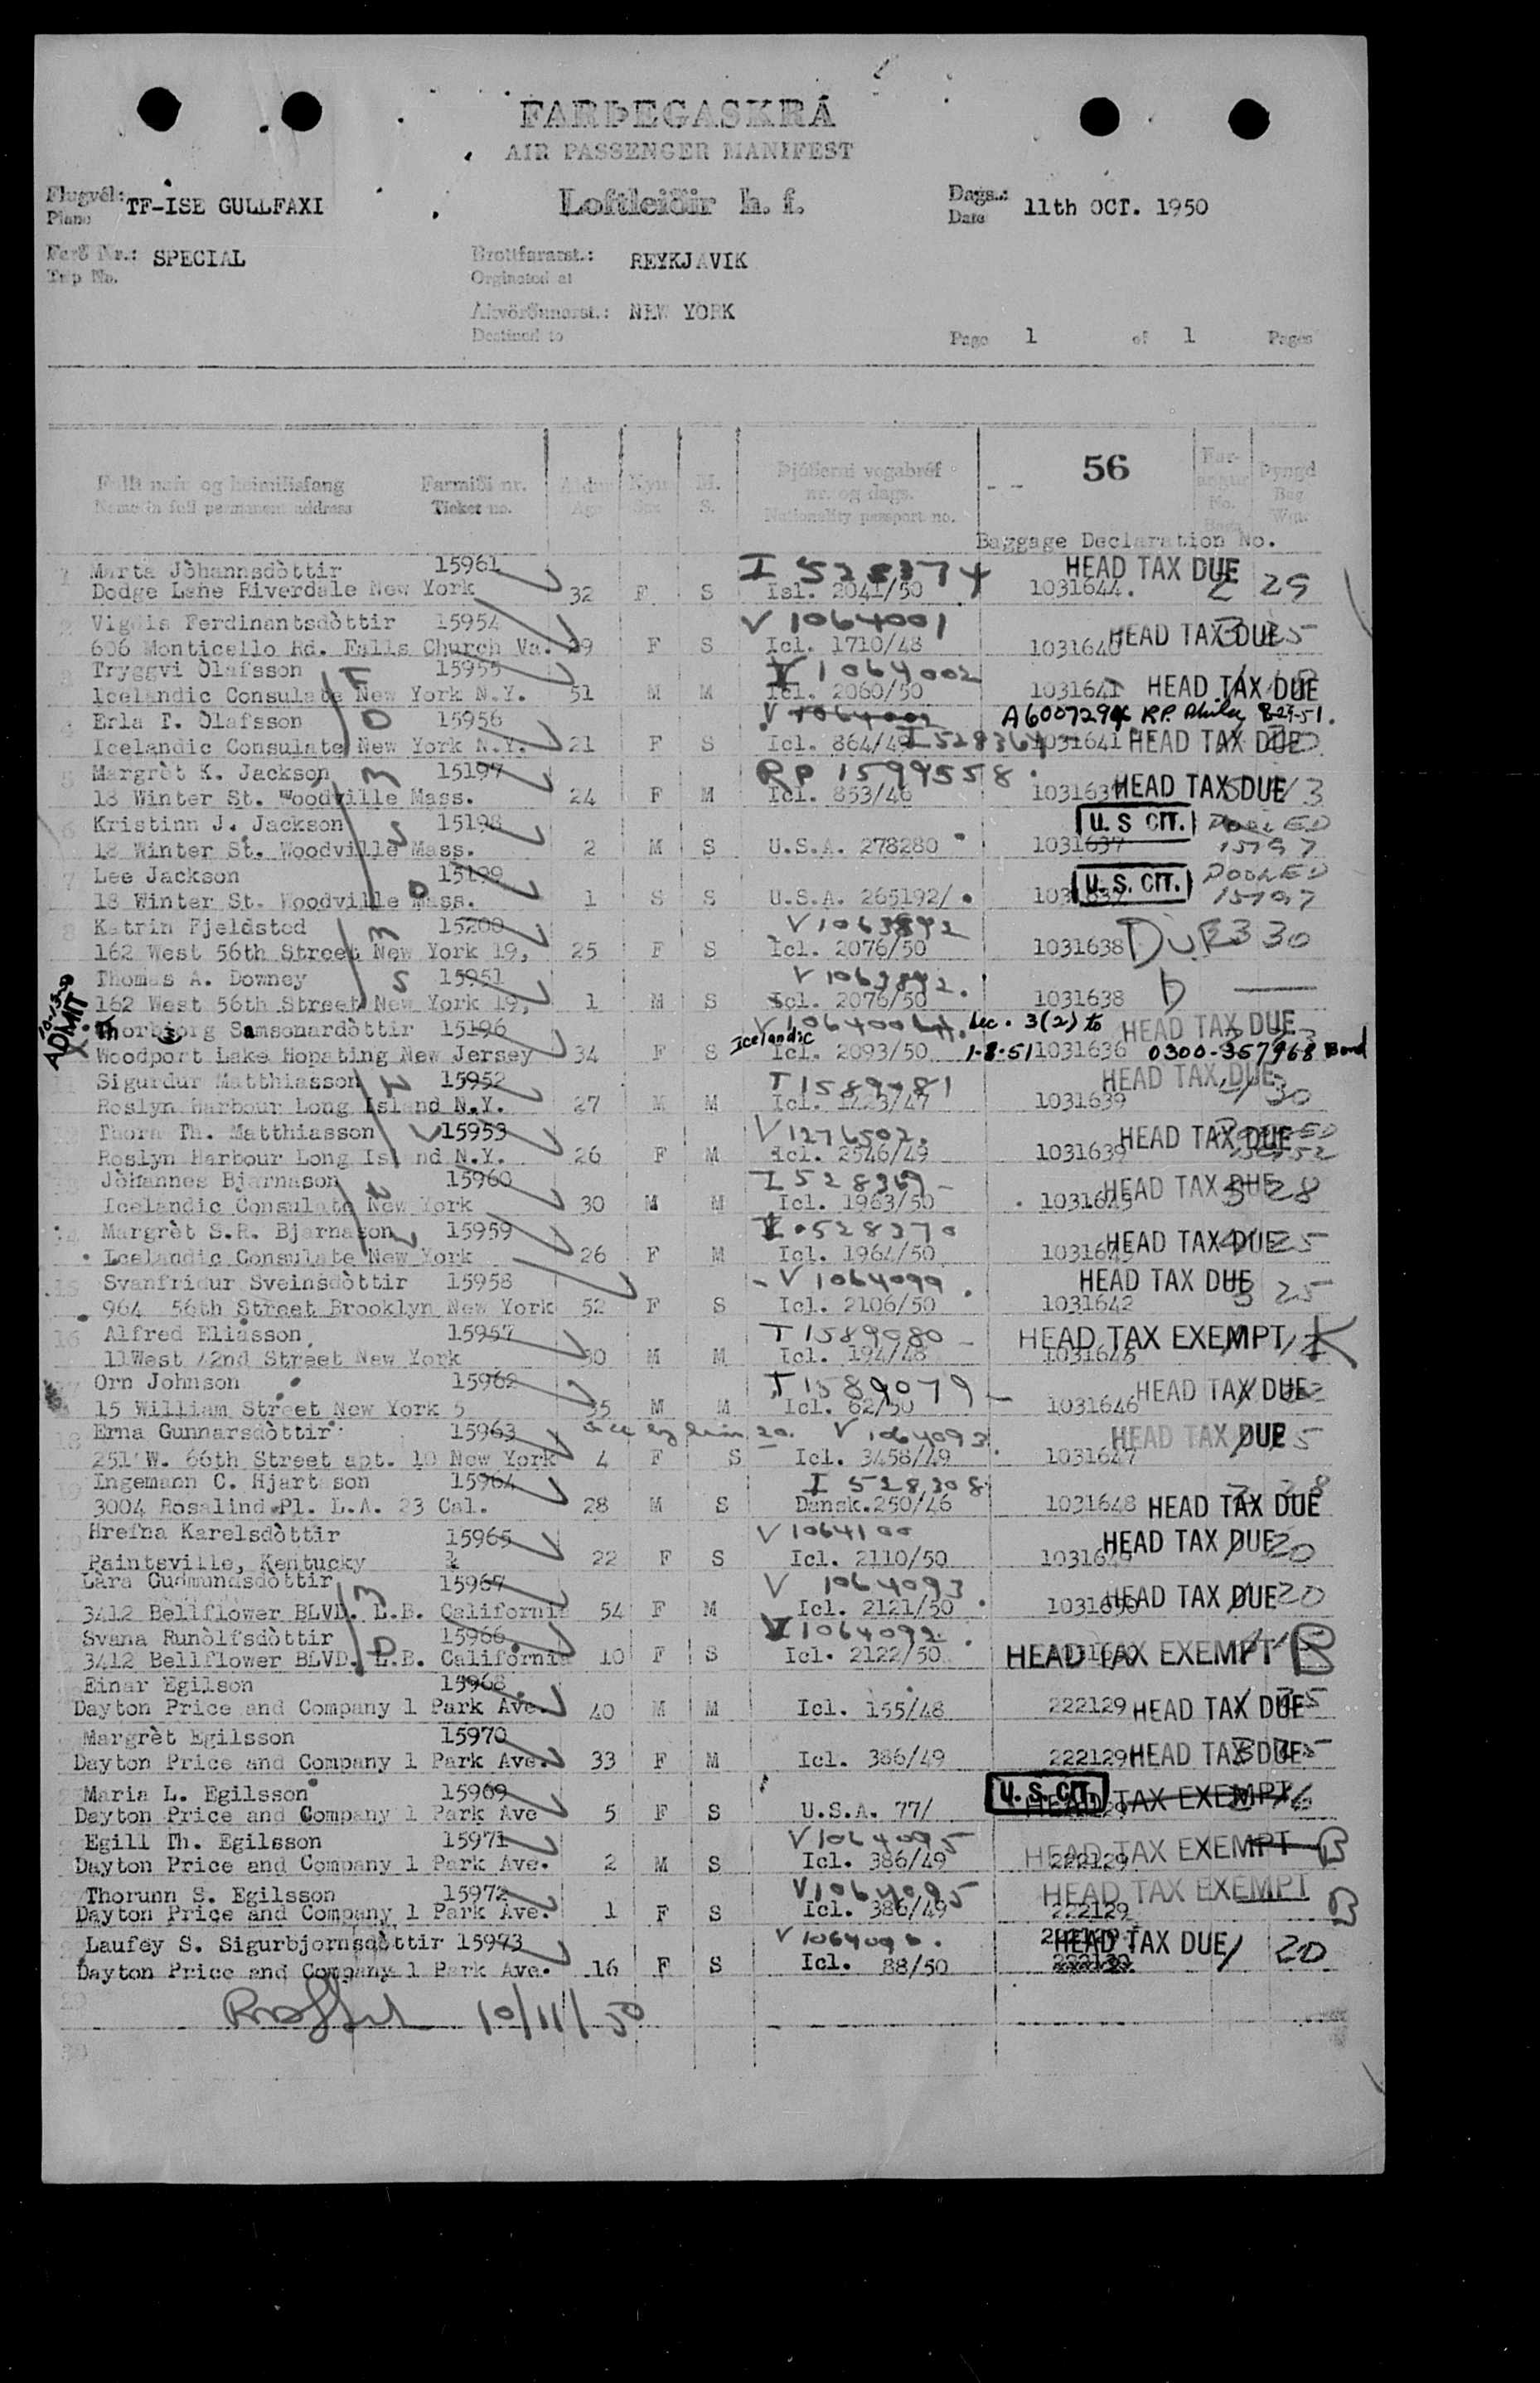 FARÞEGASKRÁ
AIR PASSENGER MANIFEST
Loftleiðir h. f.
Flugvél: TF-ISE GULLFAXI
Plane
Dags.: 11th OCT. 1950
Date
Ferð Nr.: SPECIAL
Trip No.
Brottfararst.: REYKJAVIK
Orginated at
Ákvörðunarst.: NEW YORK
Destined to
Page 1 of 1 Pages
56
Fullt nafn og heimilisfang Farmiði nr. Aldur Kyn M. Þjóðerni vegabréf
nr. og dags.
Name in full permanent address Ticket no. Age Sex S. Nationality passport no.
Far-angur No. Þyngd Bag Wgt.
Baggage Declaration No.
1 Marta Jòhannsdòttir 15961 I 528374 HEAD TAX DUE
Dodge Lane Riverdale New York 32 F S Isl. 2041/50 1031644. 2 29
Vigdis Ferdinantsdòttir 15954 V 1064001 HEAD TAX DUE
606 Monticello Rd. Falls Church Va. 29 F S Icl. 1710/48 1031640
Tryggvi Òlafsson 15955 V 1064002
Icelandic Consulate New York N.Y. 51 M M Icl. 2060/50 1031641 HEAD TAX DUE
Erla T. Òlafsson 15956 V 1064002 A6007294 8-29-51.
Icelandic Consulate New York N.Y. 21 F S Icl. 864/49 I 528364 1031641 HEAD TAX DUE
5 Margrèt K. Jackson 15197 RP 1599558
18 Winter St. Woodville Mass. 24 F M Icl. 853/46 1031637 HEAD TAX DUE
6 Kristinn J. Jackson 15198 U. S CIT. POOLED
18 Winter St. Woodville Mass. 2 M S U.S.A. 278280 1031637 15197
7 Lee Jackson 15199 U. S. CIT. POOLED
18 Winter St. Woodville Mass. 1 S S U.S.A. 265192/ 1031637 15197
8 Katrin Fjeldsted 15200
162 West 56th Street New York 19, 25 F S Icl. 2076/50 1031638 30
Thomas A. Downey 15951
162 West 56th Street New York 19, 1 M S Icl. 2076/50 1031638 D
ADMIT Thorbjorg Samsonardòttir 15196 Sec. 3(2) to HEAD TAX DUE
Woodport Lake Hopating New Jersey 34 F S Icelandic Icl. 2093/50 1-8-51 1031636 0300-357968 Bond
Sigurdur Matthiasson 15952 HEAD TAX DUE
Roslyn Harbour Long Island N.Y. 27 M M Icl. 1423/47 1031639 30
Thora Th. Matthiasson 15953 V 1276502. HEAD TAX DUE
Roslyn Harbour Long Island N.Y. 26 F M Icl. 2546/49 1031639
Jòhannes Bjarnason 15960 I 528369 HEAD TAX DUE
Icelandic Consulate New York 30 M M Icl. 1963/50 1031643 28
14 Margrèt S.R. Bjarnason 15959 I 528370
Icelandic Consulate New York 26 F M Icl. 1964/50 1031643 HEAD TAX DUE 25
15 Svanfridur Sveinsdòttir 15958 V 1064099 HEAD TAX DUE
964 56th Street Brooklyn New York 52 F S Icl. 2106/50 1031642 3 25
16 Alfred Eliasson 15957 T 1589080 HEAD TAX EXEMPT
11West 72nd Street New York 30 M M Icl. 194/48 1031645
Orn Johnson 15962 T 1589079 HEAD TAX DUE
15 William Street New York 5 35 M M Icl. 62/50 1031646
18 Erna Gunnarsdòttir 15963 V 1064093 HEAD TAX DUE
251 W. 66th Street apt. 10 New York 4 F S Icl. 3458/49 1031647
19 Ingemann C. Hjartason 15964 I 528308
3004 Rosalind Pl. L.A. 23 Cal. 28 M S Dansk.250/46 1031648 HEAD TAX DUE
Hrefna Karelsdòttir 15965 V 1064100 HEAD TAX DUE
Paintsville, Kentucky 22 F S Icl. 2110/50 1031649 20
Làra Gudmundsdòttir 15967 V 1064093
3412 Bellflower BLVD. L.B. California 54 F M Icl. 2121/50 1031650 HEAD TAX DUE 20
Svana Runòlfsdòttir 15966 V 1064092
3412 Bellflower BLVD. L.B. California 10 F S Icl. 2122/50 HEAD TAX EXEMPT B
Einar Egilson 15968
Dayton Price and Company 1 Park Ave. 40 M M Icl. 155/48 222129 HEAD TAX DUE
Margrèt Egilsson 15970
Dayton Price and Company 1 Park Ave. 33 F M Icl. 386/49 222129 HEAD TAX DUE
Maria L. Egilsson 15969 U. S. CIT. HEAD TAX EXEMPT
Dayton Price and Company 1 Park Ave 5 F S U.S.A. 77/
Egill Th. Egilsson 15971 V 1064095 HEAD TAX EXEMPT B
Dayton Price and Company 1 Park Ave. 2 M S Icl. 386/49 222129
Thorunn S. Egilsson 15972 V 1064095 HEAD TAX EXEMPT B
Dayton Price and Company 1 Park Ave. 1 F S Icl. 386/49 222129
Laufey S. Sigurbjornsdòttir 15973 HEAD TAX DUE 1 20
Dayton Price and Company 1 Park Ave. 16 F S Icl. 88/50
29 10/11/50
30